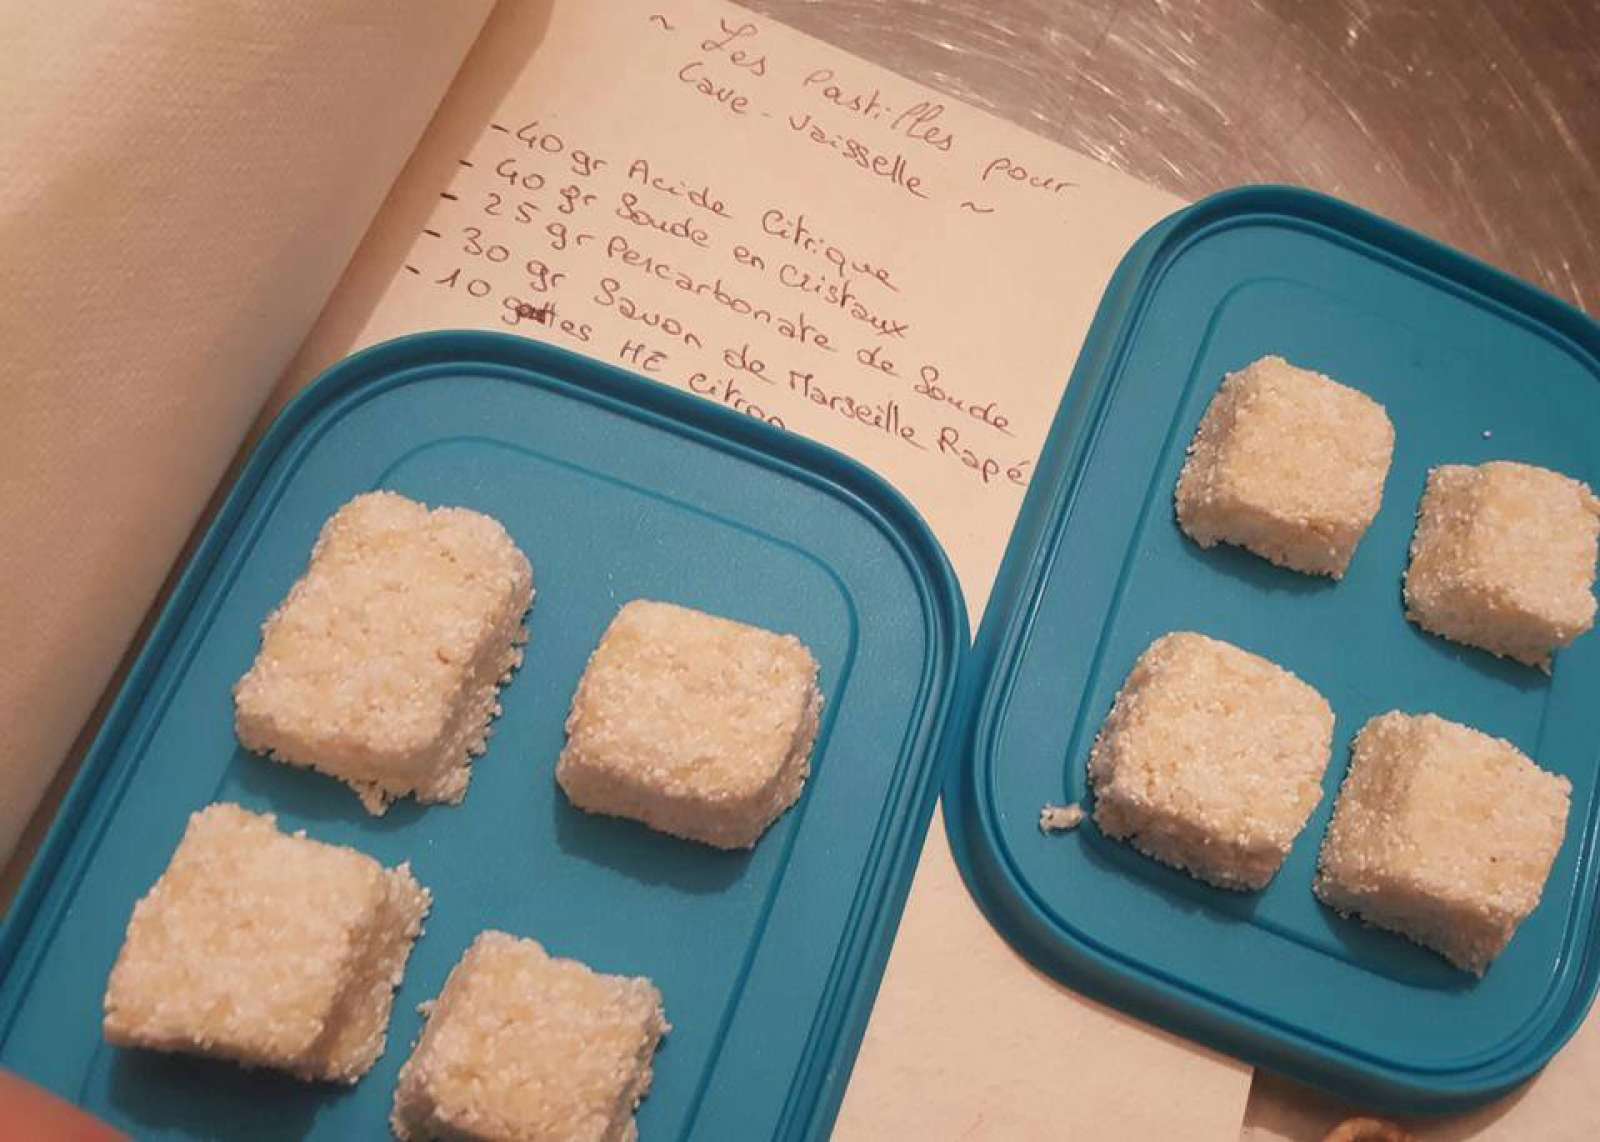 ~ Les Pastilles pour
Lave-Vaisselle ~
- 40 gr Acide Citrique
- 40 gr Soude en Cristaux
- 25 gr Percarbonate de Soude
- 30 gr Savon de Marseille Rapé
- 10 gouttes HE citron